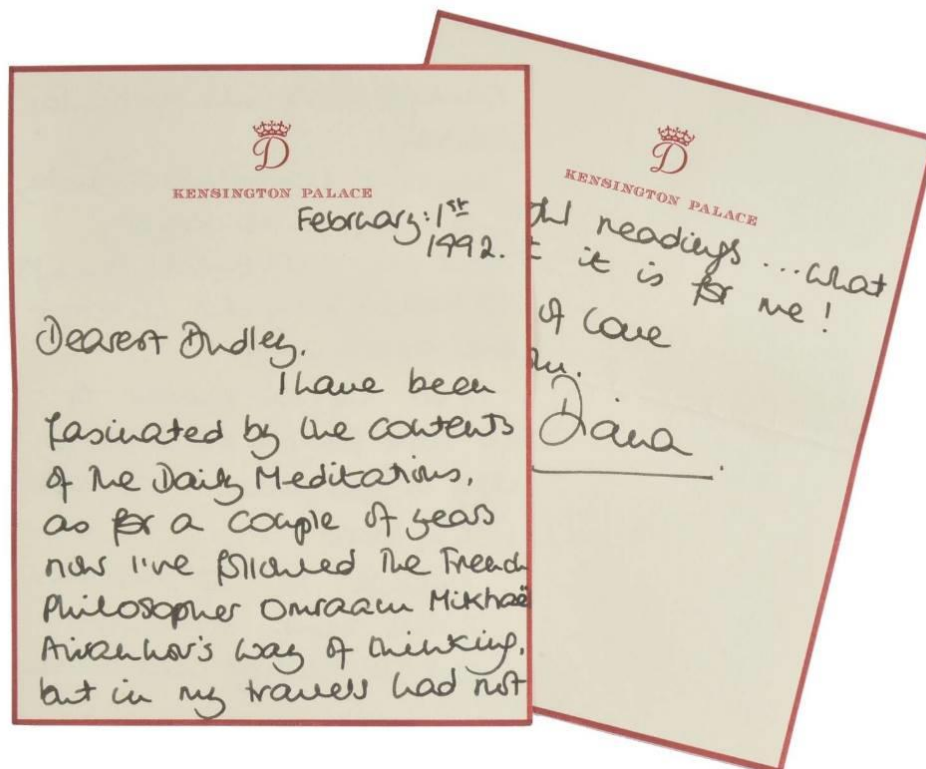 D
KENSINGTON PALACE
February: 1st
1992.
Dearest Dudley.
I have been
fasinated by the contents
of the Daily Meditations,
as for a couple of years
now I've followed the French
Philosopher Omraam Mikhaë
Aivanhov's way of thinking,
but in my travels had not
D
KENSINGTON PALACE
readings ... what
it is for me!
of love
Diana.